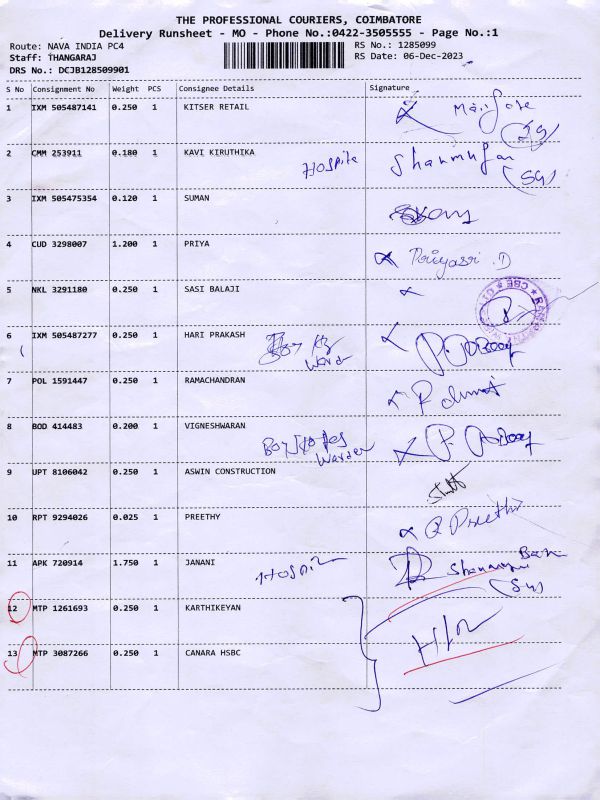 THE PROFESSIONAL COURIERS, COIMBATORE
Delivery Runsheet - MO - Phone No.:0422-3505555 - Page No.:1
Route: NAVA INDIA PC4 RS No.: 1285099
Staff: THANGARAJ RS Date: 06-Dec-2023
DRS No.: DCJB128509901
S No Consignment No Weight PCS Consignee Details Signature
1 IXM 505487141 0.250 1 KITSER RETAIL
2 CMM 253911 0.180 1 KAVI KIRUTHIKA
3 IXM 505475354 0.120 1 SUMAN
4 CUD 3298007 1.200 1 PRIYA
5 NKL 3291180 0.250 1 SASI BALAJI
6 IXM 505487277 0.250 1 HARI PRAKASH
Warden
7 POL 1591447 0.250 1 RAMACHANDRAN
8 BOD 414483 0.200 1 VIGNESHWARAN
Warden
9 UPT 8106042 0.250 1 ASWIN CONSTRUCTION
10 RPT 9294026 0.025 1 PREETHY Preethi
11 APK 720914 1.750 1 JANANI
12 MTP 1261693 0.250 1 KARTHIKEYAN
13 MTP 3087266 0.250 1 CANARA HSBC